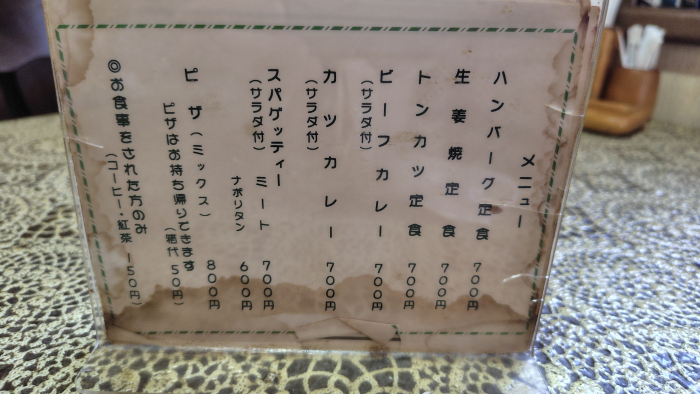 メニュー
ハンバーグ定食 700円
生姜焼定食 700円
トンカツ定食 700円
ビーフカレー 700円
(サラダ付)
カツカレー 700円
(サラダ付)
スパゲッティー ミート 700円
(サラダ付)
ナポリタン 600円
ピザ(ミックス) 800円
ピザはお持ち帰りできます
(箱代50円)
◎お食事をされた方のみ
(コーヒー・紅茶 150円)